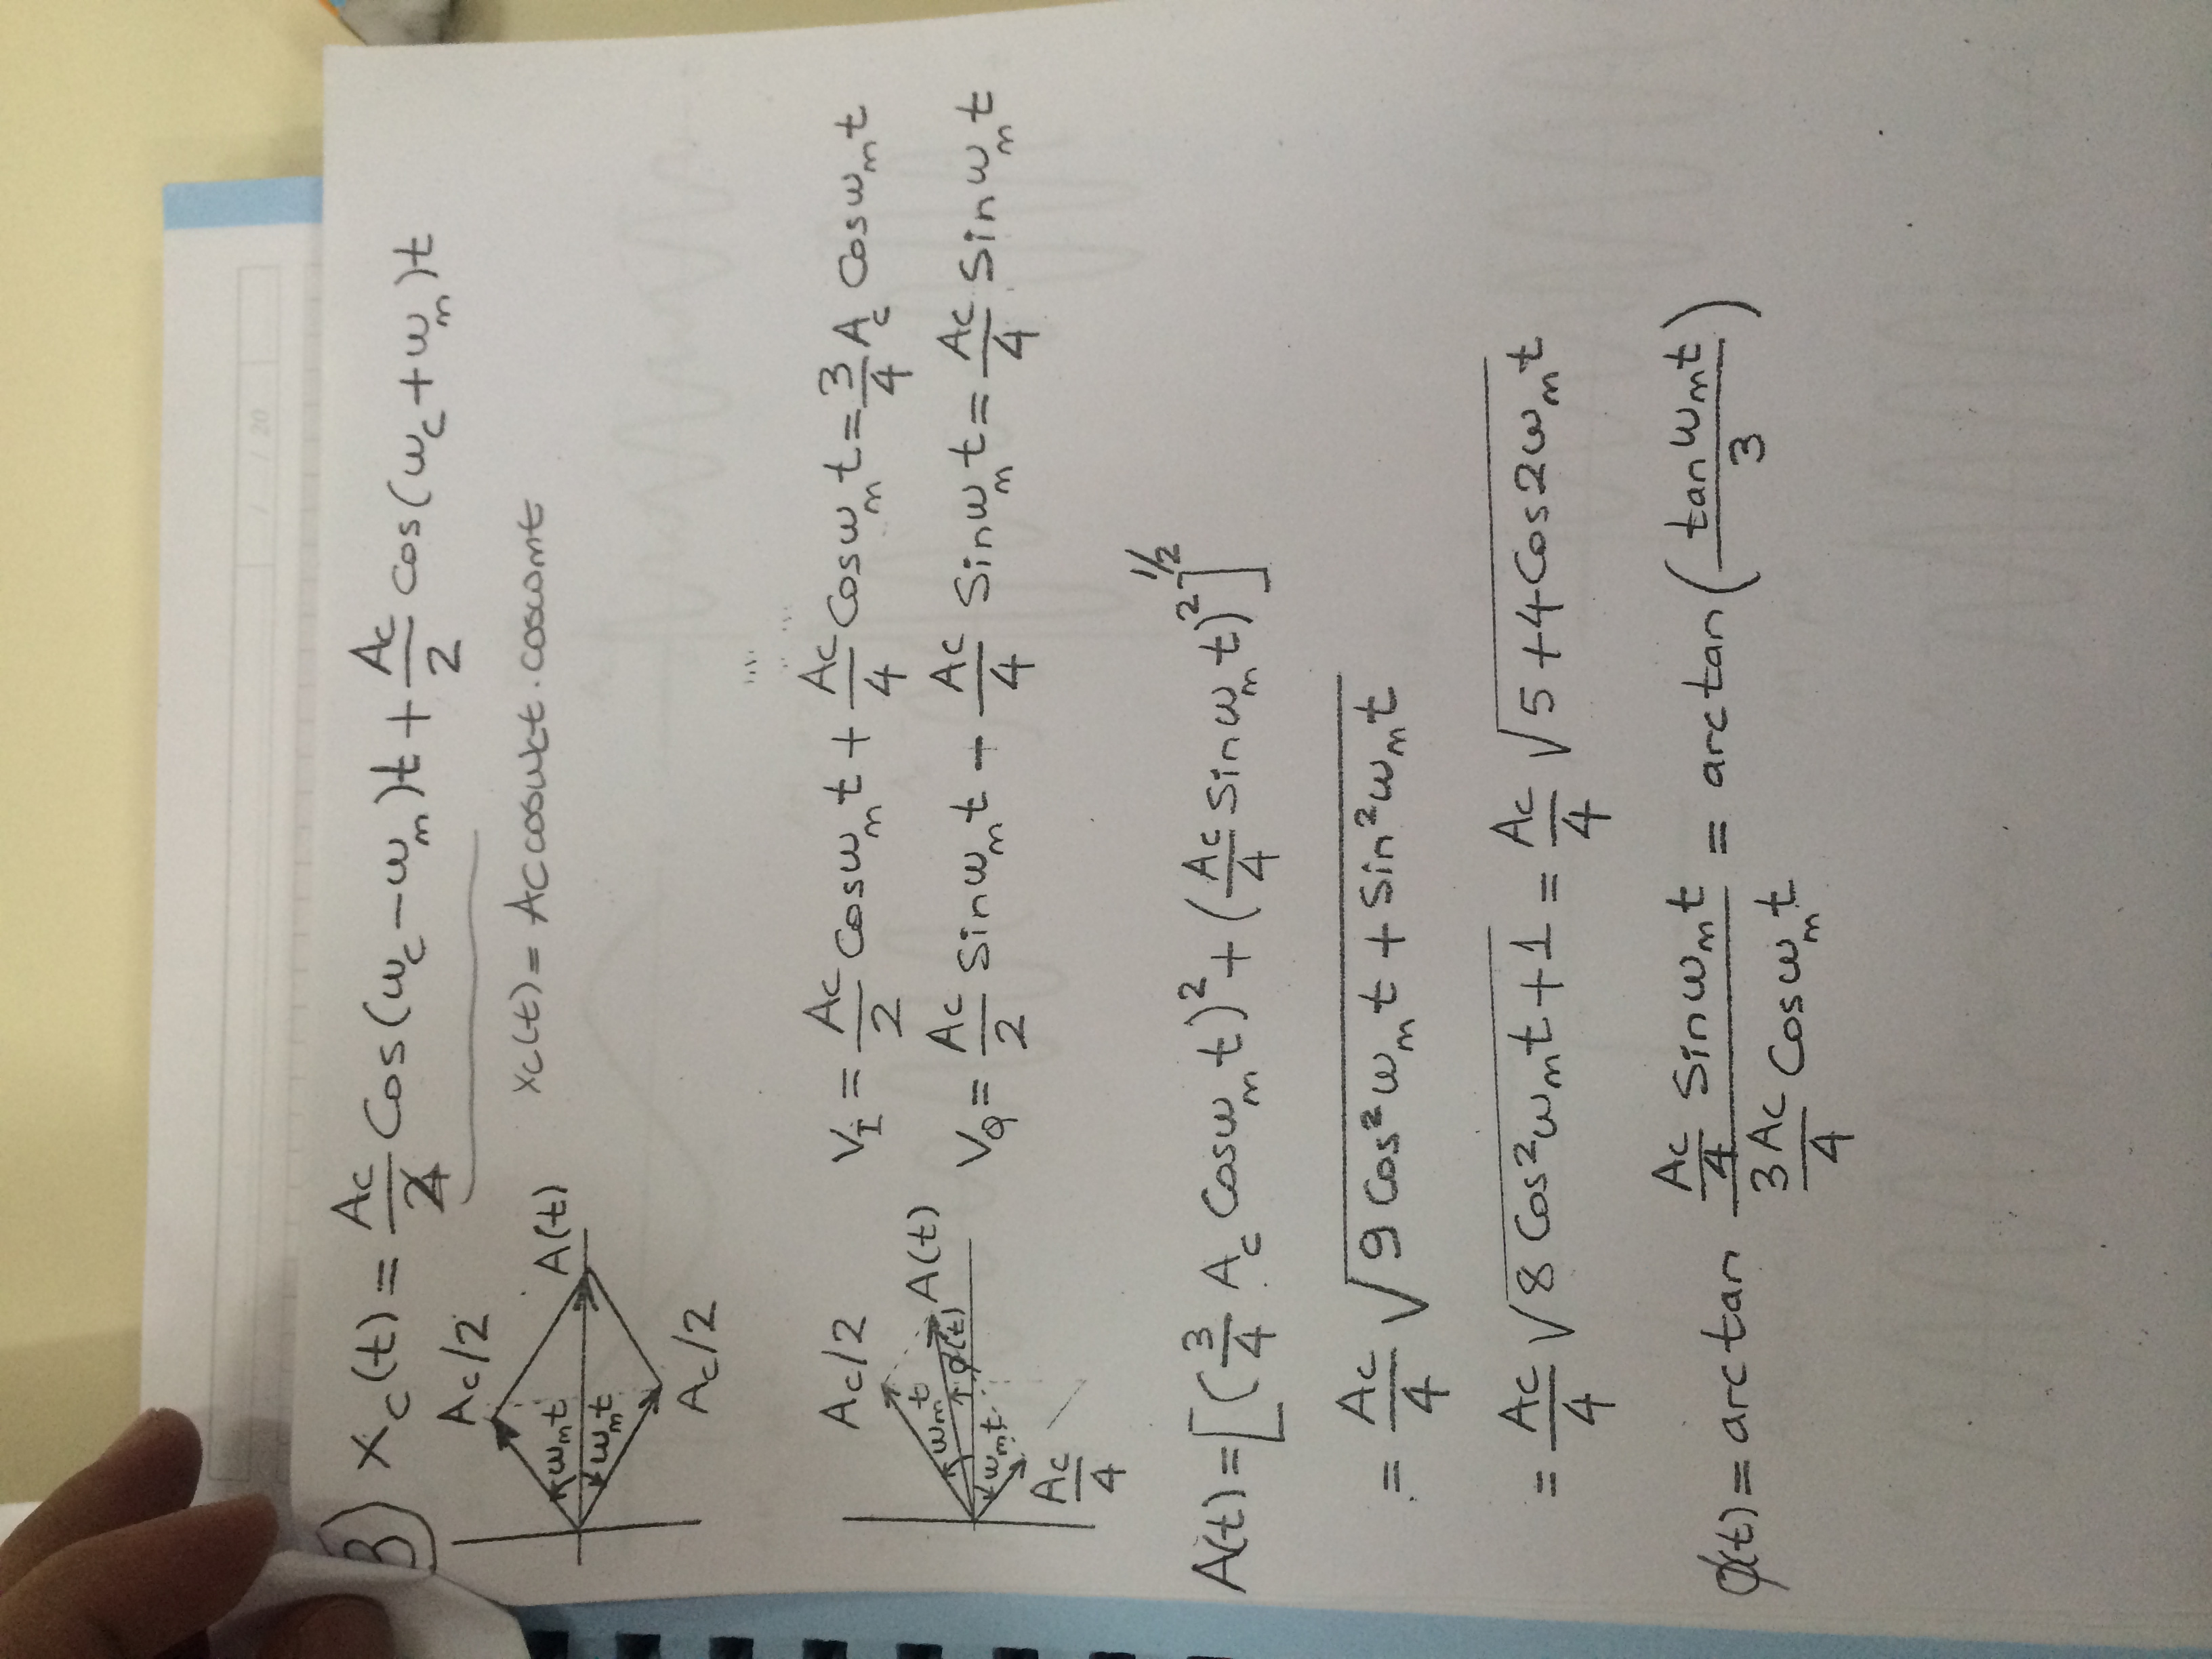 / / 20
3) x_c(t) = Ac/2 Cos(ω_c-ω_m)t + Ac/2 cos(ω_c+ω_m)t
Ac/2
x_c(t) = Accosωct . cosωmt
ω_mt A(t)
ω_mt
Ac/2
Ac/2 V_I = Ac/2 Cosω_mt + Ac/4 Cosω_mt = 3/4 A_c Cosω_mt
ω_mt A(t)
φ(t)
ω_mt V_Q = Ac/2 Sinω_mt - Ac/4 Sinω_mt = Ac/4 Sinω_mt
Ac/4
A(t) = [(3/4 A_c Cosω_mt)² + (Ac/4 Sinω_mt)²]^1/2
= Ac/4 √(9 Cos²ω_mt + Sin²ω_mt)
= Ac/4 √(8 Cos²ω_mt + 1) = Ac/4 √(5 + 4Cos2ω_mt)
φ(t) = arctan (Ac/4 Sinω_mt)/(3Ac/4 Cosω_mt) = arctan(tanω_mt/3)